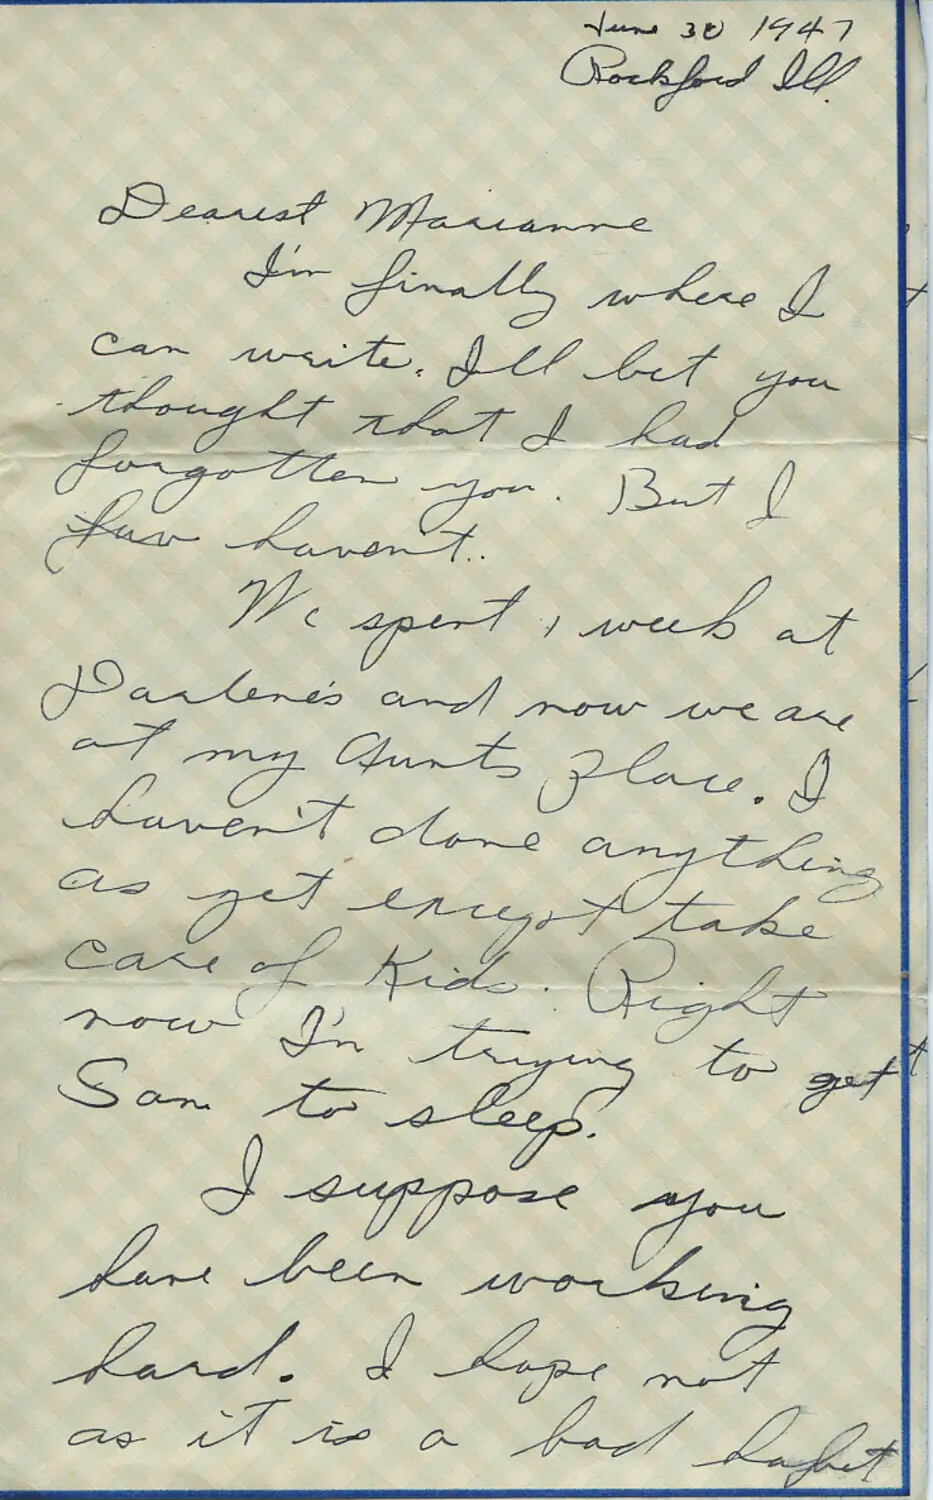 June 30 1947
Rockford Ill.
Dearest Marianne
I'm finally where I
can write. I'll bet you
thought that I had
forgotten you. But I
haven't.
We spent 1 week at
Darlene's and now we are
at my Aunts place. I
haven't done anything
as yet except take
care of Kids. Right
now I'm trying to get
Sam to sleep.
I suppose you
have been working
hard. I hope not
as it is a bad habit